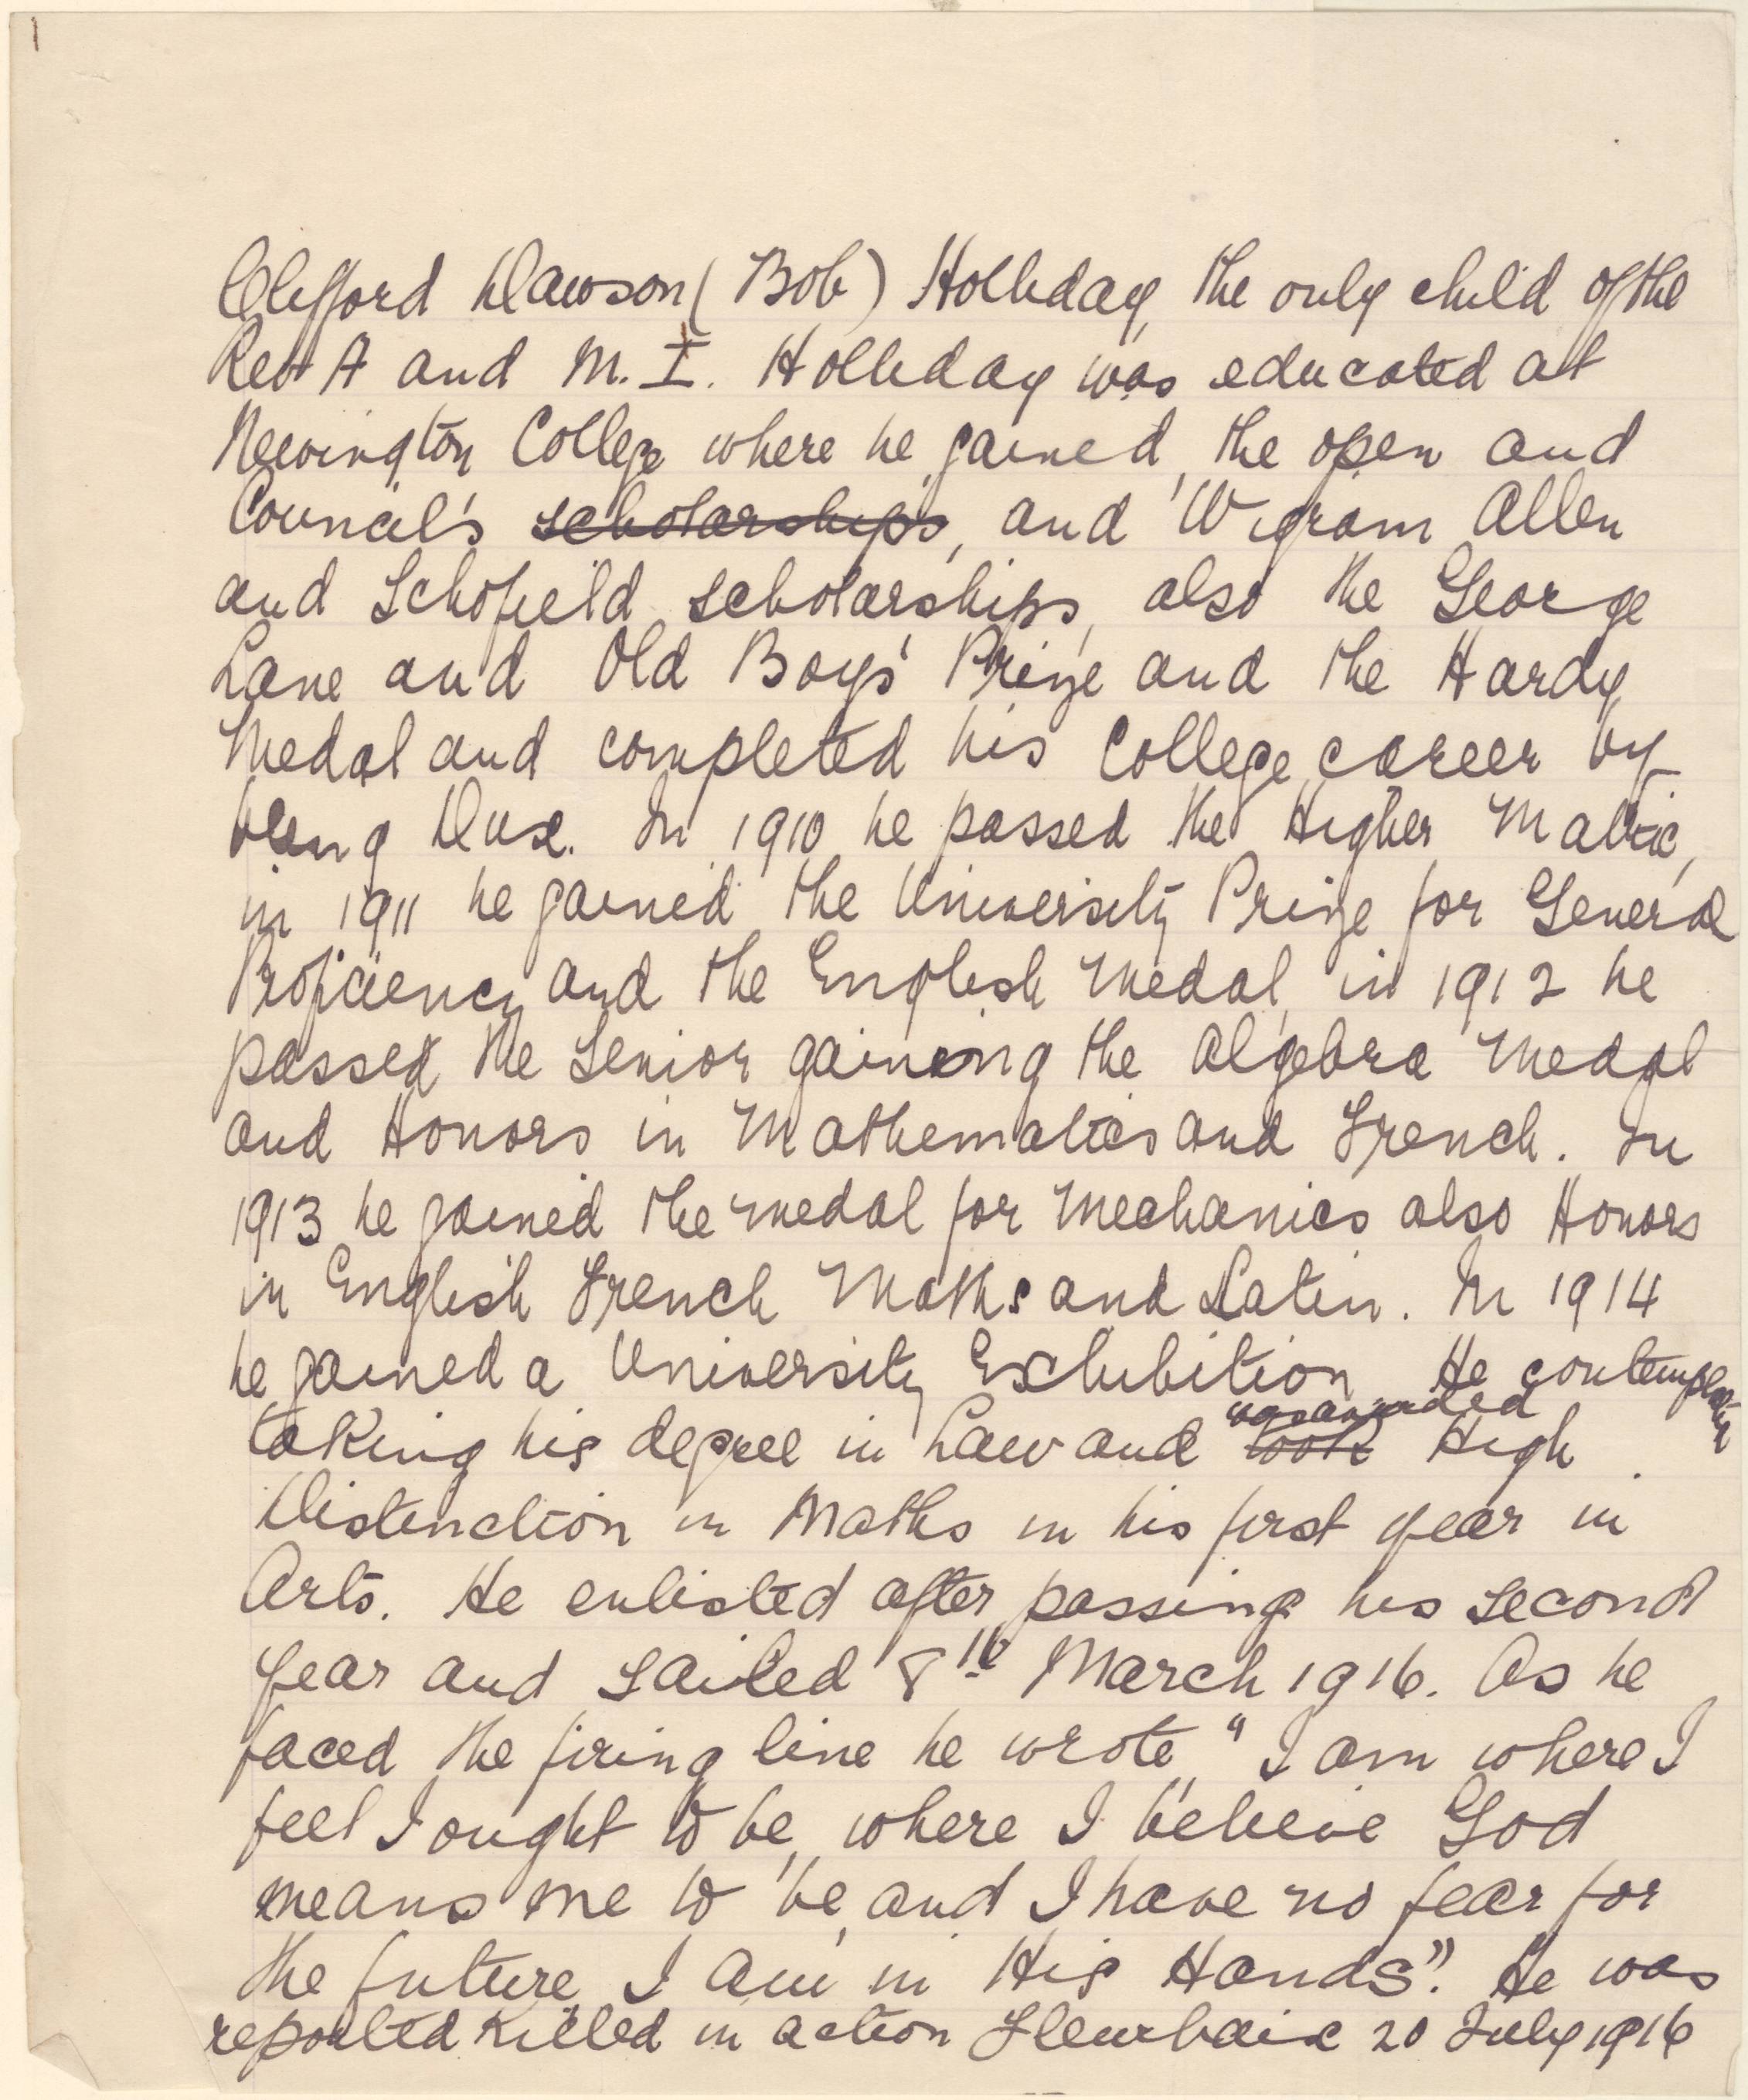 1
Clifford Dawson (Bob) Holliday, the only child of the
Rev A and M. I. Holliday was educated at
Newington College where he gained, the open and
Council's scholarships, and Wigram Allen
and Schofield scholarships, also the George
Lane and Old Boys' Prize and the Hardy
Medal and completed his College career by
being Dux. In 1910 he passed the Higher Matric,
in 1911 he gained the University Prize for General
Proficiency and the English Medal, in 1912 he
passed the Senior gaining the Algebra Medal
and Honors in Mathematics and French. In
1913 he gained the medal for Mechanics also Honors
in English French Maths and Latin. In 1914
he gained a University Exhibition He contemplated
was awarded
taking his degree in Law and took High
Distinction in Maths in his first year in
Arts. He enlisted after passing his second
year and sailed 8th March 1916. As he
faced the firing line he wrote, "I am where I
feel I ought to be, where I believe God
means me to be, and I have no fear for
the future, I am in His Hands". He was
reported killed in action Fleurbaix 20 July 1916